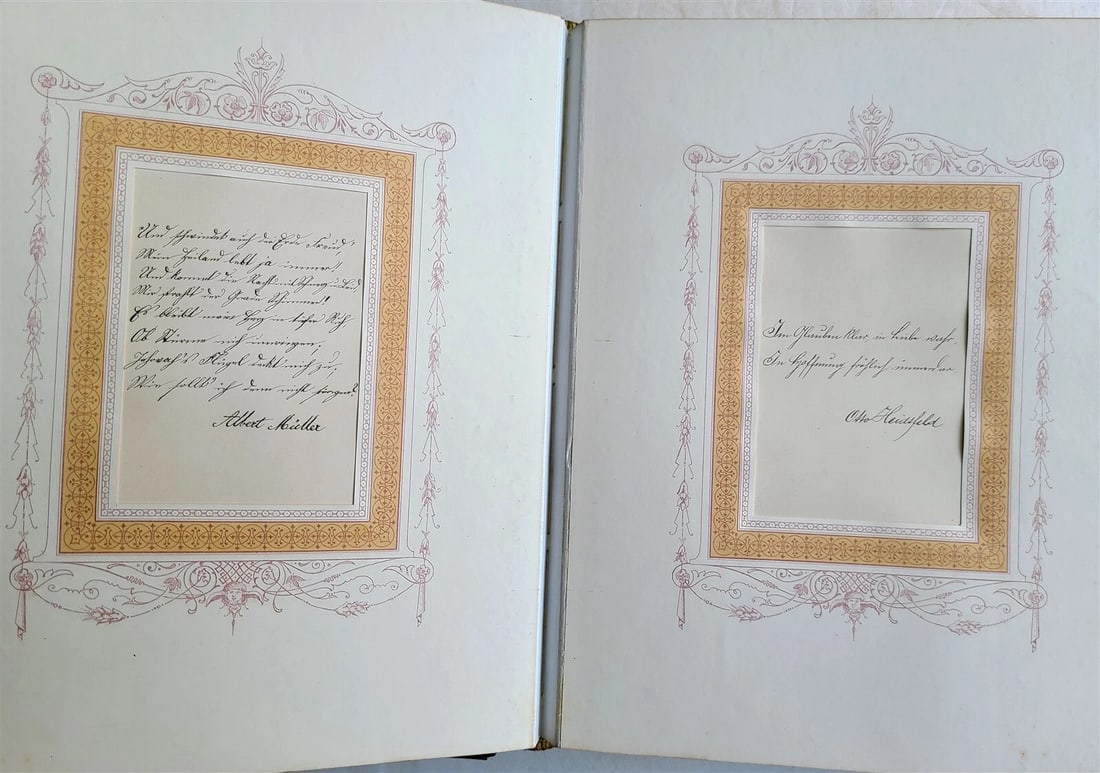 Und schwindet auch der Erde Freud',
Mein Heiland lebt ja immer,
Und kommt die Nacht mit Schmerz u. Leid
Mir strahlt der Gnade Schimmer!
Es bleibt mein Herz in tiefer Ruh
Ob Stürme mich umwogen,
Jehovah's Flügel deckt mich zu,
Wie sollt' ich denn nicht
Albert Müller
Im Glauben klar, in Liebe wahr,
In Hoffnung fröhlich immerdar
Otto